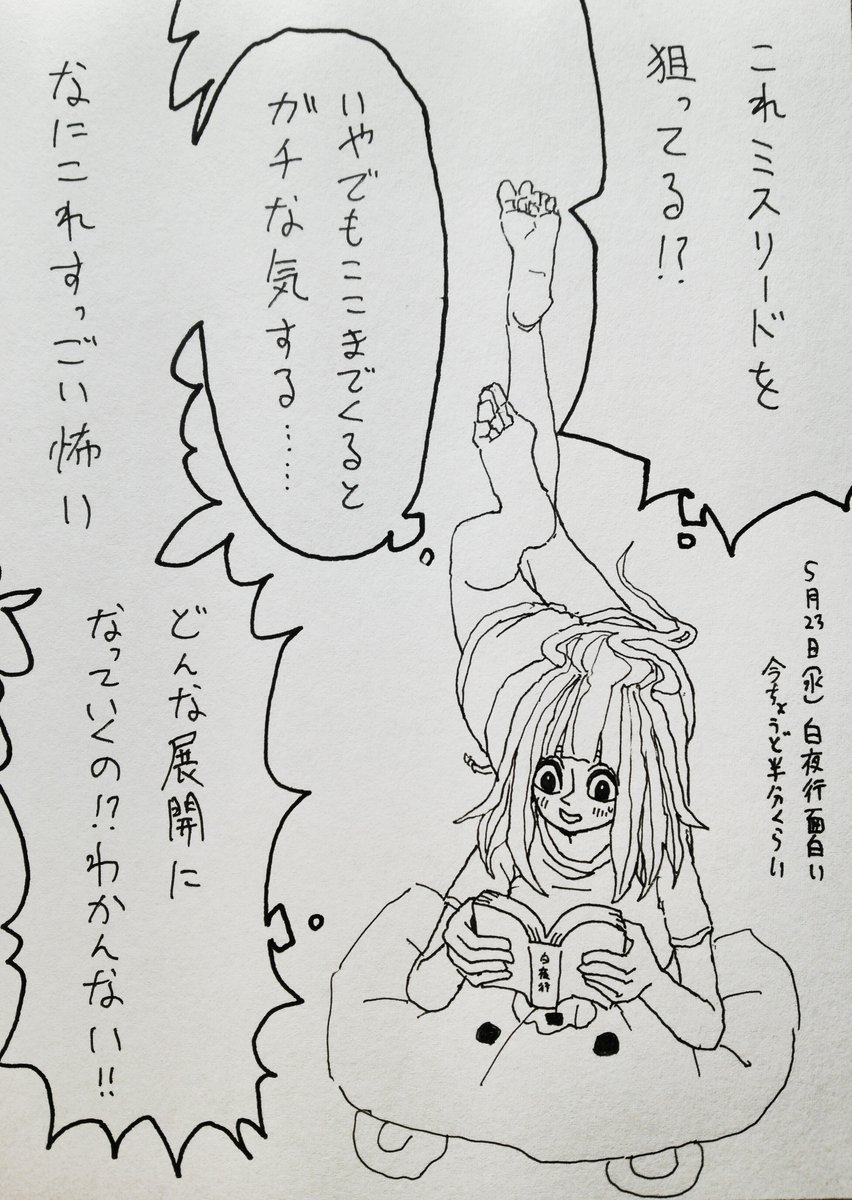 これミスリードを
狙ってる!?
いやでもここまでくると
ガチな気する……
なにこれすっごい怖い
どんな展開に
なっていくの!?わかんない!!
5月23日(水)白夜行面白い
今ちょうど半分くらい
白夜行